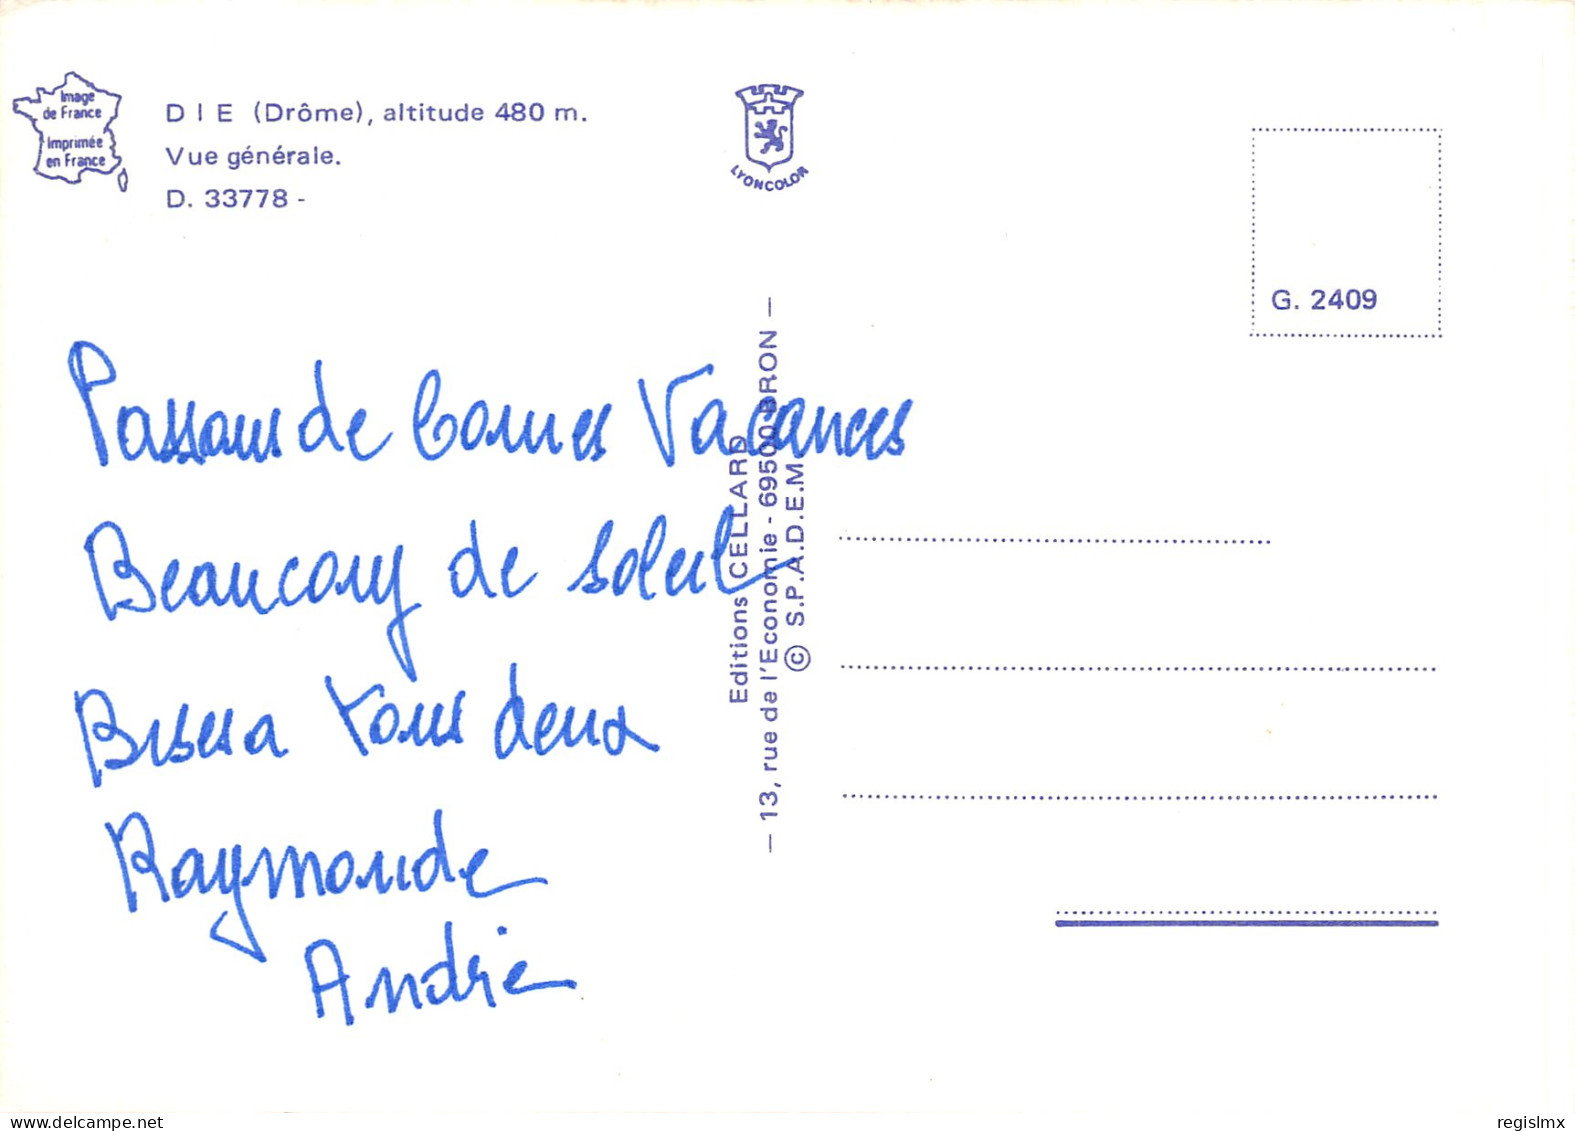 Image
de France
Imprimée
en France
D I E (Drôme), altitude 480 m.
Vue générale.
D. 33778 -
LYONCOLOR
G. 2409
Passons de bonnes Vacances
Beaucoup de soleil
Bises a tous deux
Raymonde
André
Editions CELLARD
— 13, rue de l'Economie - 69500 BRON —
© S.P.A.D.E.M.
delcampe.net
regislmx